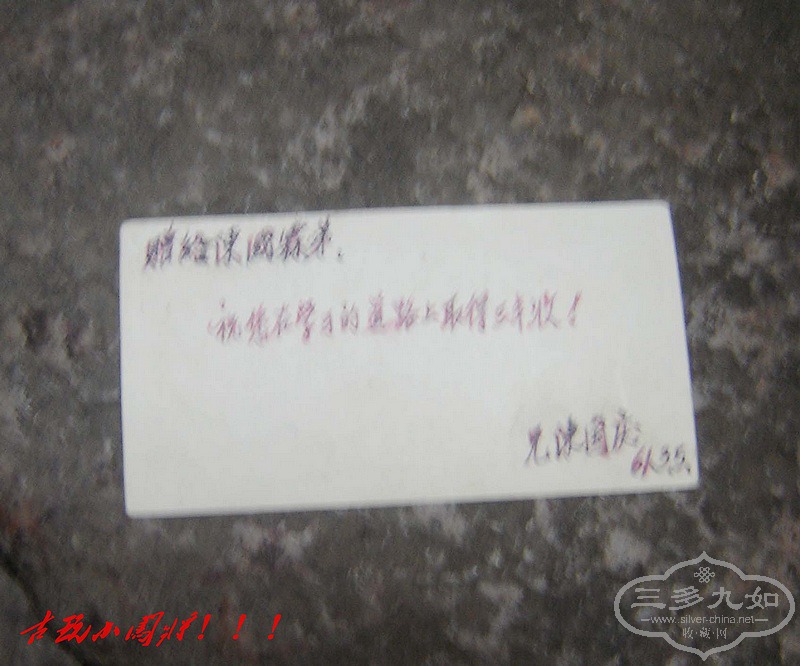 贈给陳國霖弟.
祝您在学习的道路上取得三丰收!
兄陳國庆
61.3.5.
古瓦小闯将!!!
三多九如
www.silver-china.net
收·藏·网